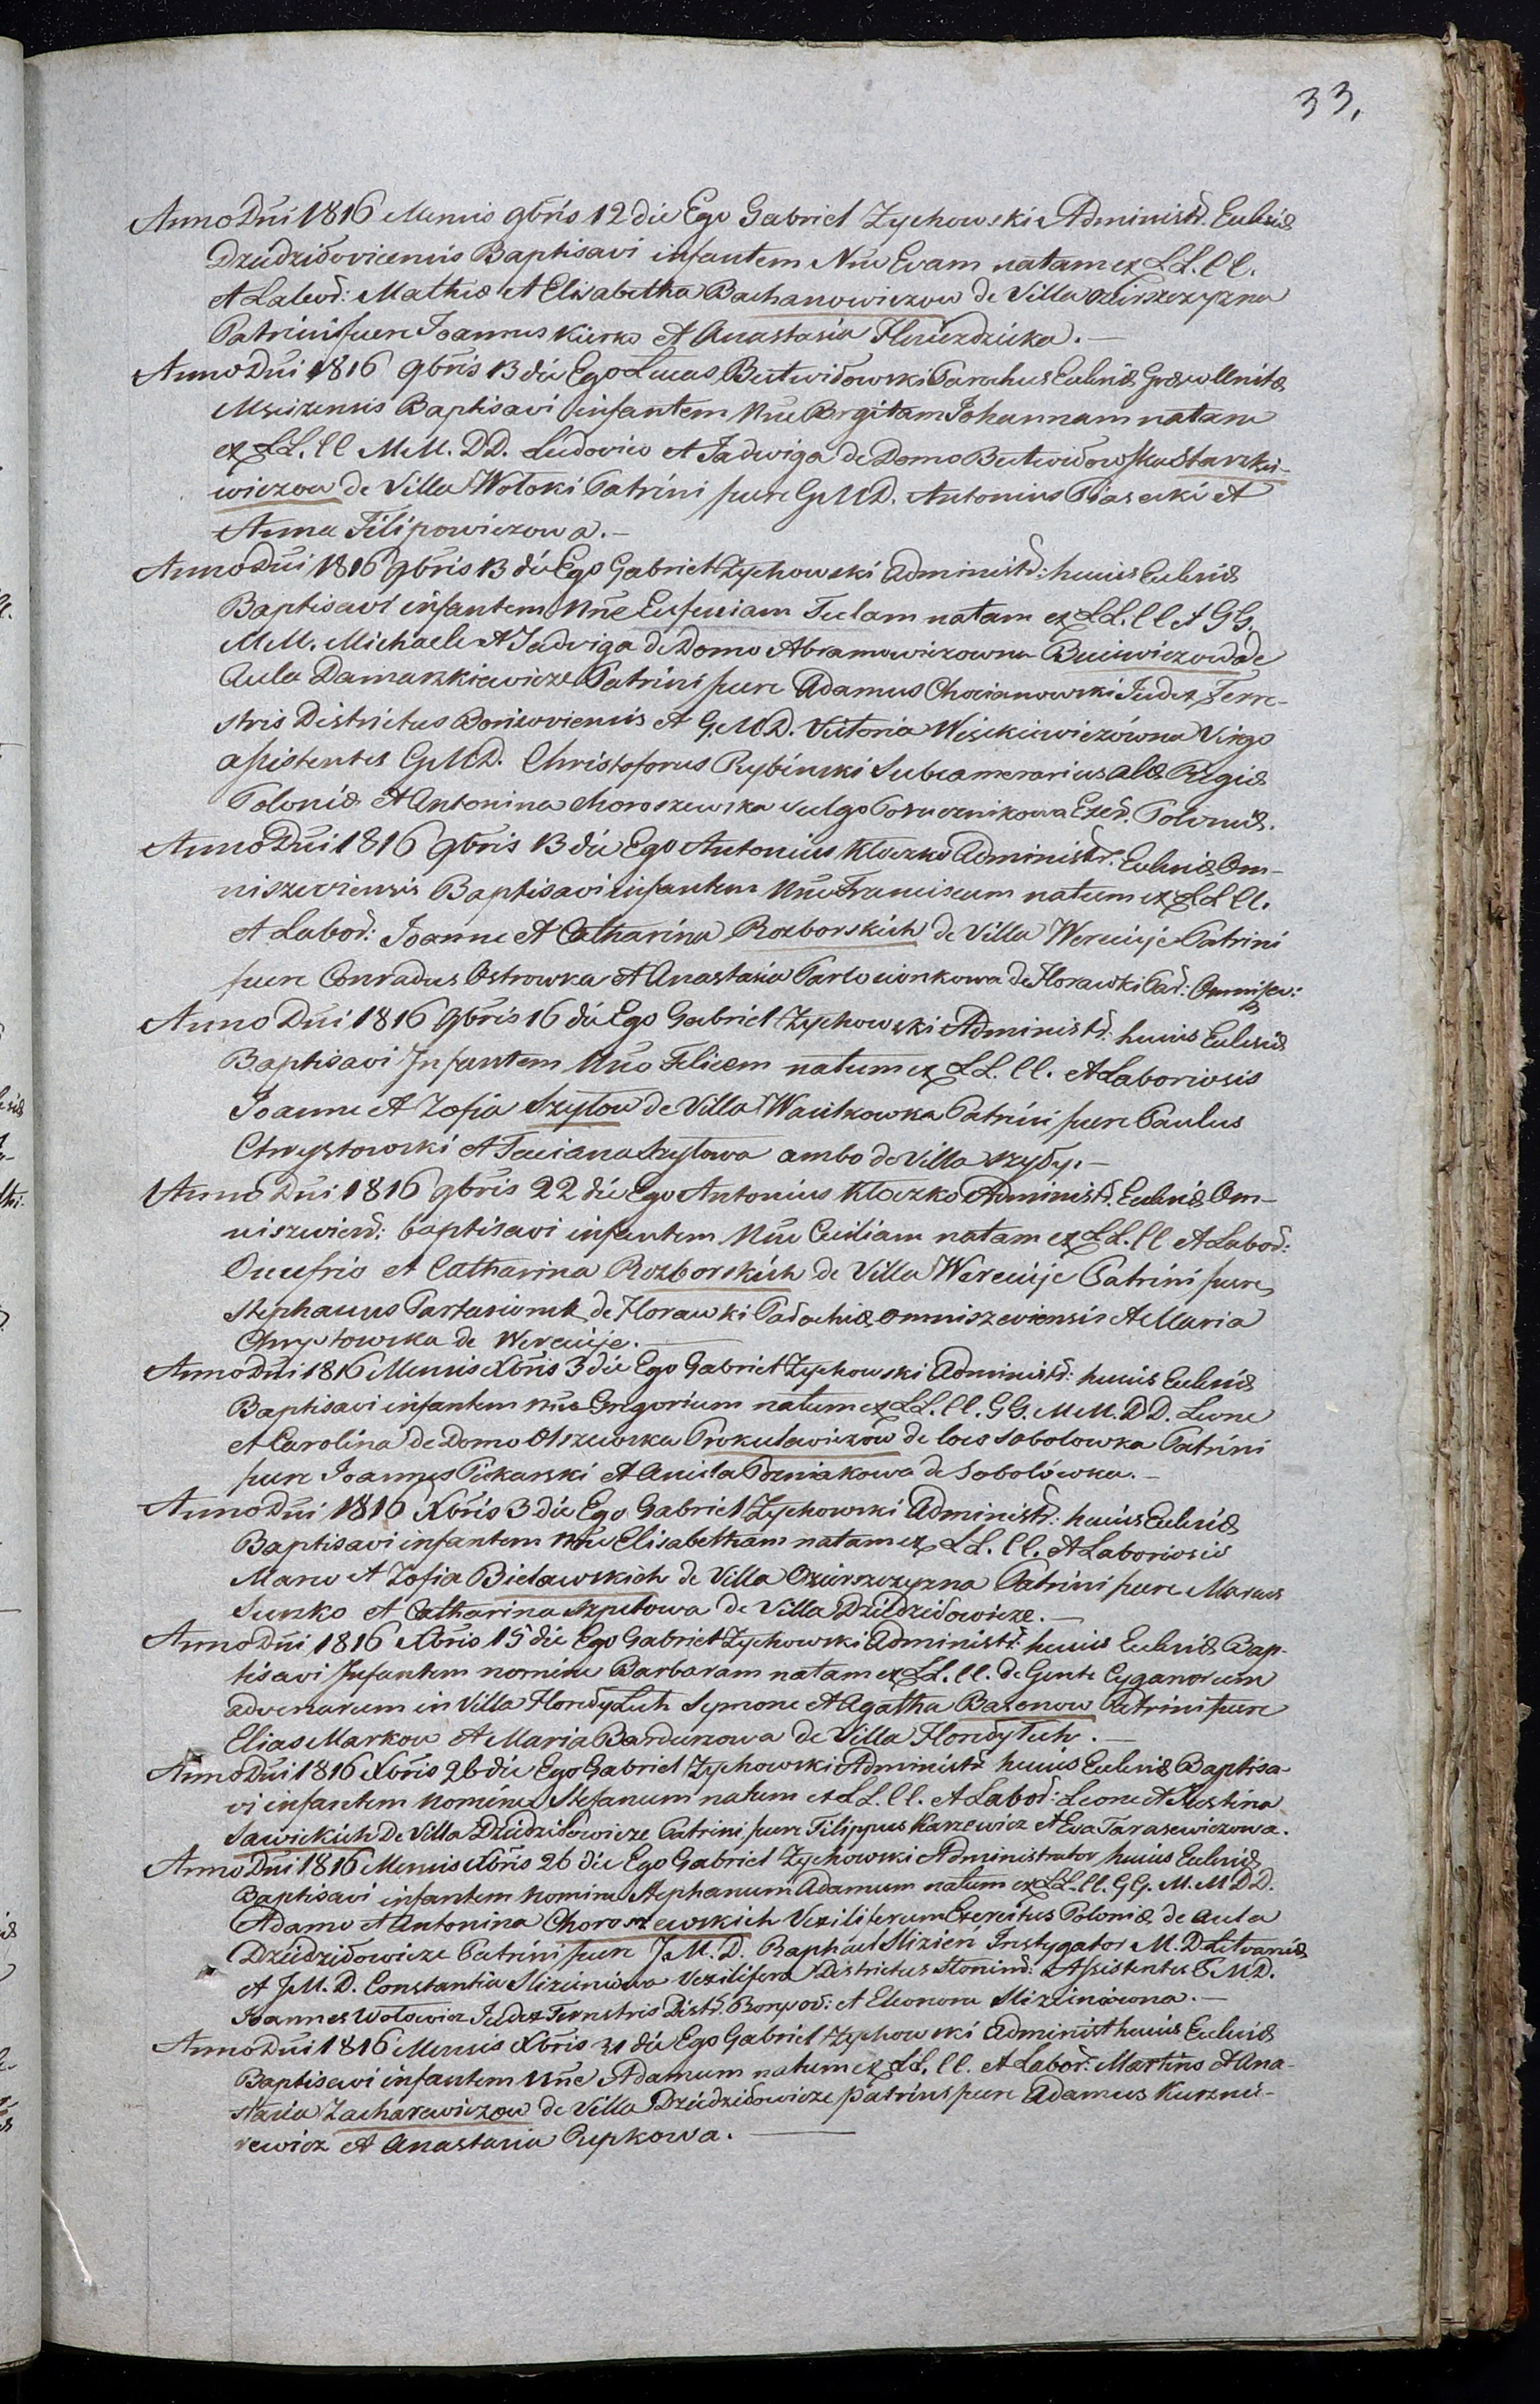 33.
Anno Dni 1816 Mensis 9bris 12 die Ego Gabriel Zychowski Administr. Eccl̃siæ
Dziedziłoviciensis Baptisavi infantem Nne Evam natam ex LL. ll.
et Labor̃: Mathia et Elisabetha Bachanowiczow de Villa Oziersczyzna
Patrini fuere Joannes Kierko et Anastasia
Anno Dni 1816 9bris 13 die Ego Lucas Butwiłowski Parochus Eccl̃siæ Græco Unitæ
Msciżensis Baptisavi infantem Nne Brgitam Johannam natam
ex LL. ll M.M. D.D. Ludovico et Jadwiga de Domo Butwiłowska Starzki-
wiczow de Villa Wołoki Patrini fuere G.M.D. Antonius Piasecki et
Anna Filipowiczowa.
Anno Dni 1816 9bris 13 die Ego Gabriel Zychowski Administr: huius Eccl̃siæ
Baptisavi infantem Nne Eufeniam Teclam natam ex LL. ll et GG.
M.M. Michaele et Jadviga de Domo Abramowiczowna de
Aula Damaszkiewicze Patrini fuere Adamus Chocianowski Judex Terre-
stris Districtus Borisoviensis et G.M.D. Victoria Virgo
assistentes G.M.D. Christoforus Rybinski Subcamerarius alæ Regiæ
Poloniæ et Antonina Choroszewska vulgo Porucznikowa Exer̃. Poloniæ.
Anno Dni 1816 9bris 13 die Ego Antonius Kloczko Administr̃. Eccl̃siæ Om-
niszeviensis Baptisavi infantem Nne Franciscum natum ex LL ll.
et Labor̃: Joanne et Catharina Rozborskich de Villa Wereiuje Patrini
fuere Conradus Ostrowka et Anastasia de Horawki Par̃: Omnisze:
Anno Dni 1816 9bris 16 die Ego Gabriel Zychowski Administr̃. huius Eccl̃siæ
Baptisavi Infantem Nne Felicem natum ex LL. ll. et Laboriosis
Joanne et Zofia Szyłow de Villa Wacukowka Patrini fuere Paulus
Chrystowski et Taciana Szyłowa ambo de Villa Szyły.
Anno Dni 1816 9bris 22 die Ego Antonius Kloczko Administr̃. Eccl̃siæ Om-
niszevien̄: baptisavi infantem Nne Ceciliam natam ex LL. ll et Labor̃:
Onufrio et Catharina Rozborskich de Villa Wereiuje Patrini fuere
Stephanus de Horawki Parochiæ Omniszeviensis et Maria
Chrystowska de Wereiuje.
Anno Dni 1816 Mensis Xbris 3 die Ego Gabriel Zychowski Administr̃: huius Eccl̃siæ
Baptisavi infantem Nne Gregorium natum ex LL. ll. GG. M.M. D.D. Leone
et Carolina de Domo Olszewska Prokulewiczow de loco Sobolowka Patrini
fuere Joannes Piekarski et Aniela Pozniakowa de Sobolówka.
Anno Dni 1816 Xbris 3 die Ego Gabriel Zychowski Administr̃: huius Eccl̃siæ
Baptisavi infantem Nne Elisabetham natam ex LL. ll. et Laboriosis
Marco et Zofia Bielawskich de Villa Oziersczyzna Patrini fuere Marcus
Sunko et Catharina Szpetowa de Villa Dziedziłowicze.
Anno Dni 1816 Xbris 15 die Ego Gabriel Zychowski Administr̃: huius Eccl̃siæ Bap-
tisavi Infantem nomine Barbaram natam ex LL. ll. de Gente Cyganorum
advenarum in Villa Symone et Agatha Bazenow Patrini fuere
Elias Markow et Maria de Villa
Anno Dni 1816 Xbris 26 die Ego Gabriel Zychowski Administr̃ huius Eccl̃siæ Baptisa-
vi infantem Nomine Stefanum natum ex LL. ll. et Labor̃: Leone et Justina
Sawickich de Villa Dziedziłowicze Patrini fuere Filippus Karzewicz et Eva Tarasewiczowa.
Anno Dni 1816 Mensis Xbris 26 die Ego Gabriel Zychowski Administrator huius Eccl̃siæ
Baptisavi infantem Nomine Stephanum Adamum natum ex LL. ll. GG. M.M D.D.
Adamo et Antonina Choroszewskich Vexiliferum Exercitus Poloniæ de Aula
Dziedziłowicze Patrini fuere J.M.D. Raphael Slizień Instygator M.D. Litvaniæ
et J.M.D. Constantia Slizieniowa Vexilifera Districtus Słonim̃: Assistentes G.M.D.
Joannes Wołowicz Judex Terrestris Distr̃. Borysov̄: et Eleonora Slizieniowna.
Anno Dni 1816 Mensis Xbris 31 die Ego Gabriel Zychowski Administ huius Eccl̃siæ
Baptisavi infantem Nne Adamum natum ex LL. ll. et Labor̃: Martino et Ana-
stasia Zacharewiczow de Villa Dziedziłowicze Patrini fuere Adamus Kuzni-
rewicz et Anastasia Repkowa.